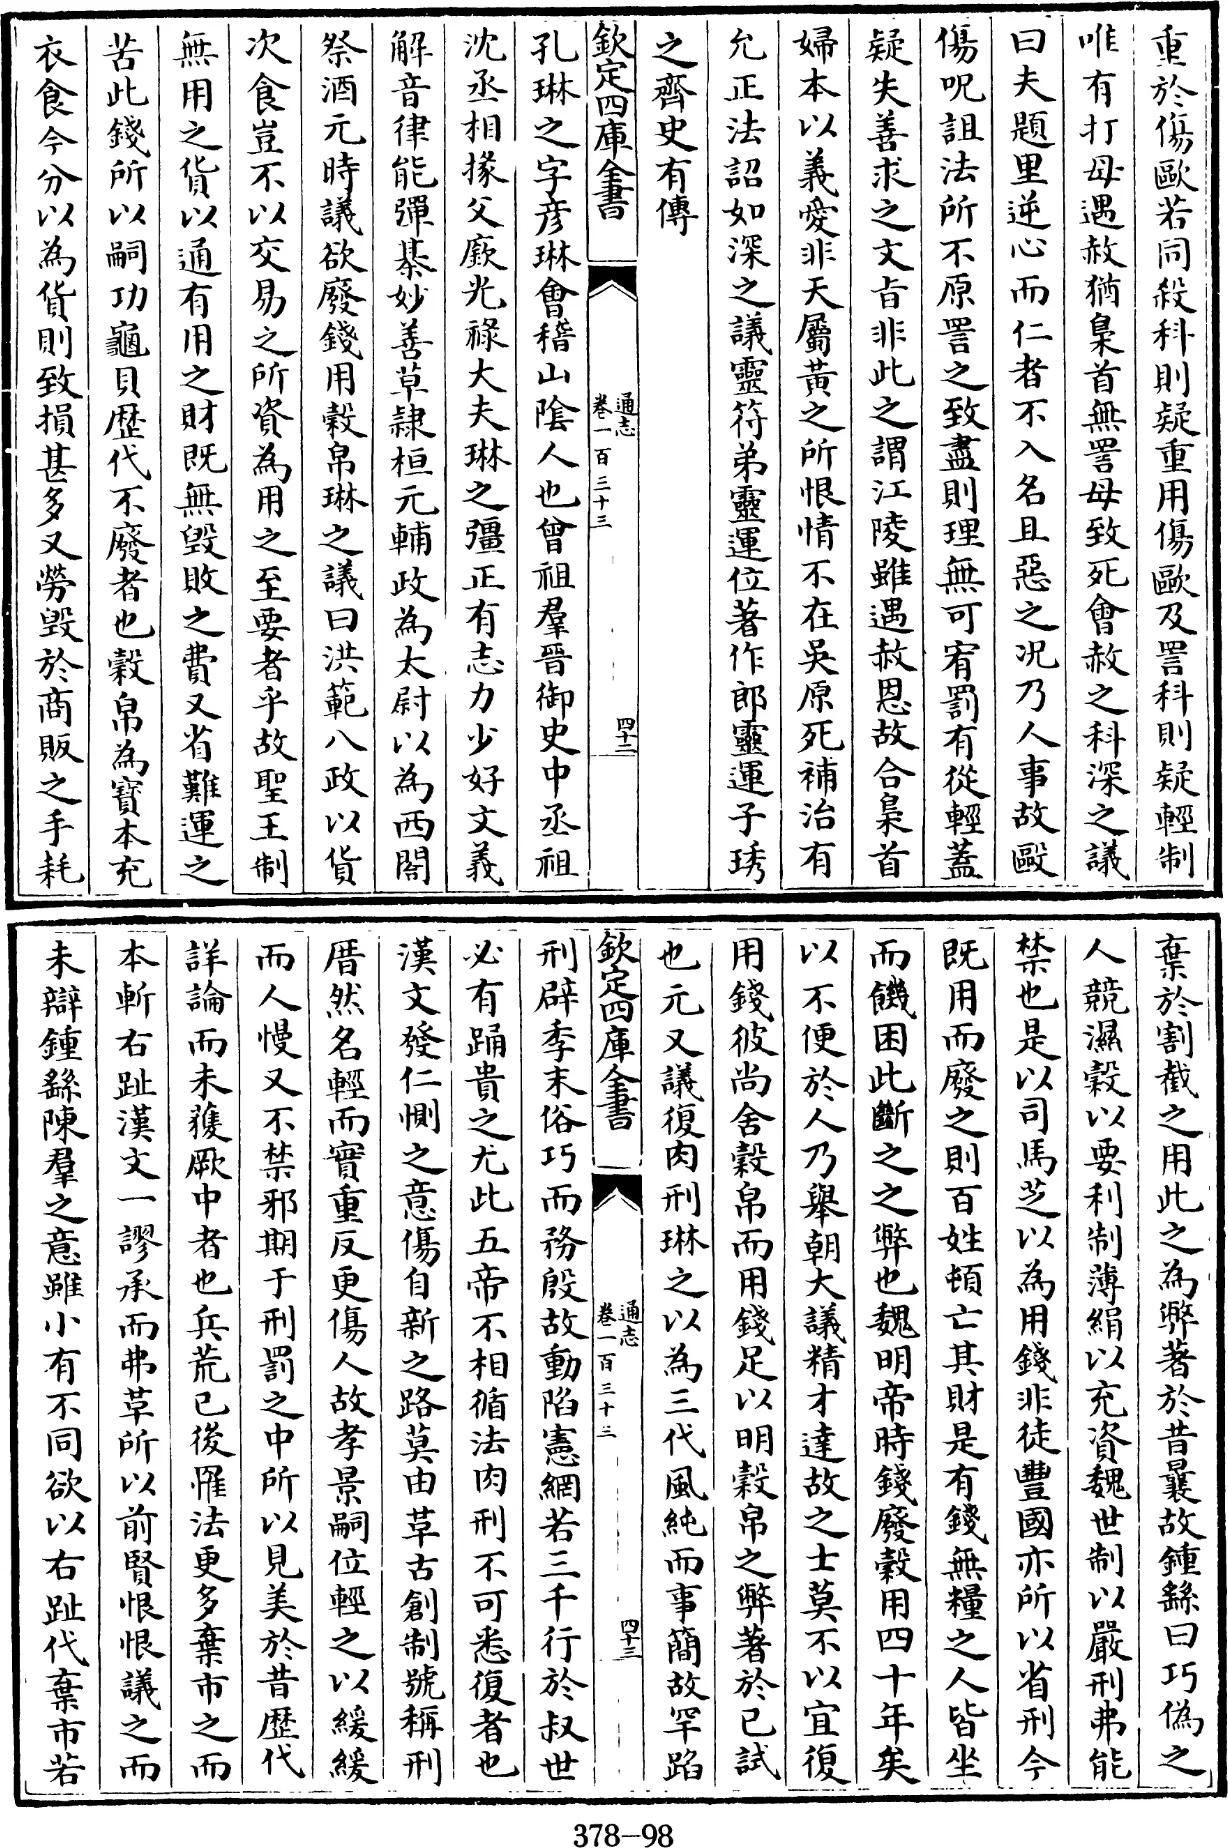 重於傷歐若同殺科則疑重用傷歐及詈科則疑輕制
唯有打母遇赦猶梟首無詈母致死會赦之科深之議
曰夫題里逆心而仁者不入名且惡之況乃人事故毆
傷呪詛法所不原詈之致盡則理無可宥罰有從輕蓋
疑失善求之文旨非此之謂江陵雖遇赦恩故合梟首
婦本以義愛非天屬黃之所恨情不在吳原死補治有
允正法詔如深之議靈符弟靈運位著作郎靈運子琇
之齊史有傳
欽定四庫全書
通志
卷一百三十三
四十二
孔琳之字彦琳會稽山陰人也曾祖羣晉御史中丞祖
沈丞相掾父廞光祿大夫琳之彊正有志力少好文義
解音律能彈棊妙善草隸桓元輔政為太尉以為西閤
祭酒元時議欲廢錢用穀帛琳之議曰洪範八政以貨
次食豈不以交易之所資為用之至要者乎故聖王制
無用之貨以通有用之財既無毀敗之費又省難運之
苦此錢所以嗣功龜貝歷代不廢者也穀帛為寳本充
衣食今分以為貨則致損甚多又勞毀於商販之手耗
棄於割截之用此之為弊著於昔曩故鍾繇曰巧偽之
人競濕穀以要利制薄絹以充資魏世制以嚴刑弗能
禁也是以司馬芝以為用錢非徒豐國亦所以省刑今
既用而廢之則百姓頓亡其財是有錢無糧之人皆坐
而饑困此斷之之弊也魏明帝時錢廢穀用四十年矣
以不便於人乃舉朝大議精才達故之士莫不以宜復
用錢彼尚舍穀帛而用錢足以明穀帛之弊著於已試
也元又議復肉刑琳之以為三代風純而事簡故罕蹈
欽定四庫全書
通志
卷一百三十三
四十三
刑辟季末俗巧而務殷故動陷憲網若三千行於叔世
必有踊貴之尤此五帝不相循法肉刑不可悉復者也
漢文發仁惻之意傷自新之路莫由草古創制號稱刑
厝然名輕而實重反更傷人故孝景嗣位輕之以緩緩
而人慢又不禁邪期于刑罰之中所以見美於昔歷代
詳論而未獲厥中者也兵荒已後罹法更多棄市之而
本斬右趾漢文一謬承而弗草所以前賢恨恨議之而
未辯鍾繇陳羣之意雖小有不同欲以右趾代棄市若
378-98